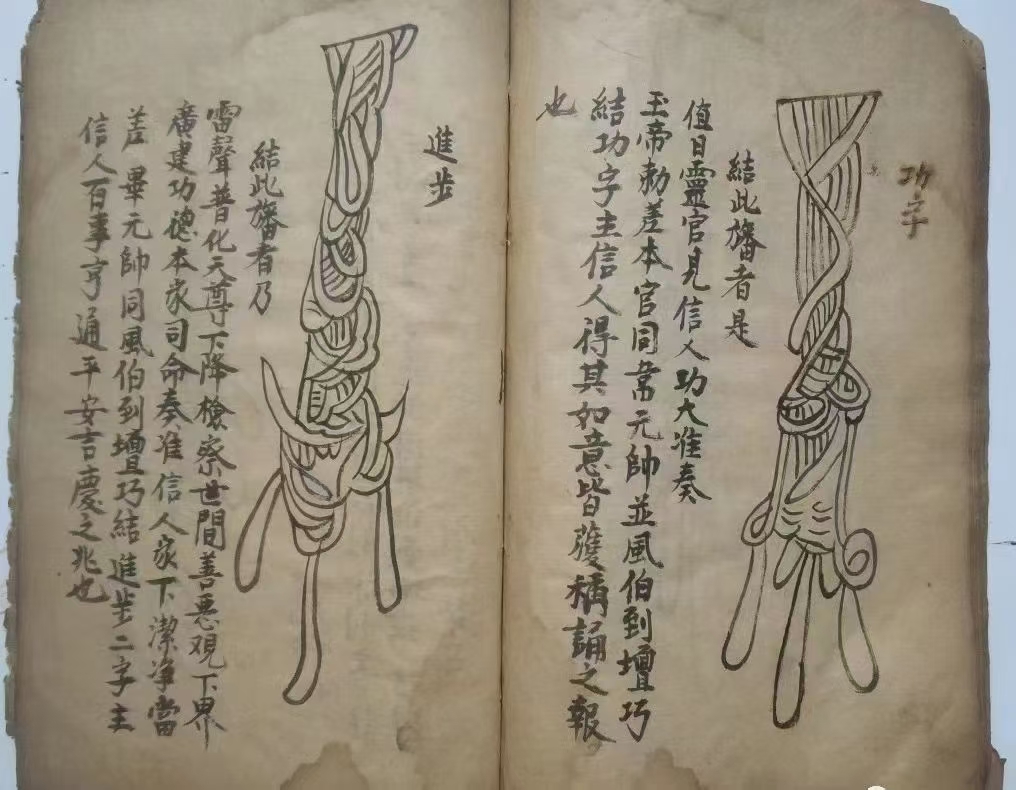 功字
結此旛者是
值日靈官見信人功大准奏
玉帝勅差本官同常元帥並風伯到壇巧
結功字主信人得其如意皆獲稱誦之報
也
進步
結此旛者乃
雷聲普化天尊下降檢察世間善惡觀下界
廣建功德本家司命奏准信人家下潔净當
差畢元帥同風伯到壇巧結進步二字主
信人百事亨通平安吉慶之兆也